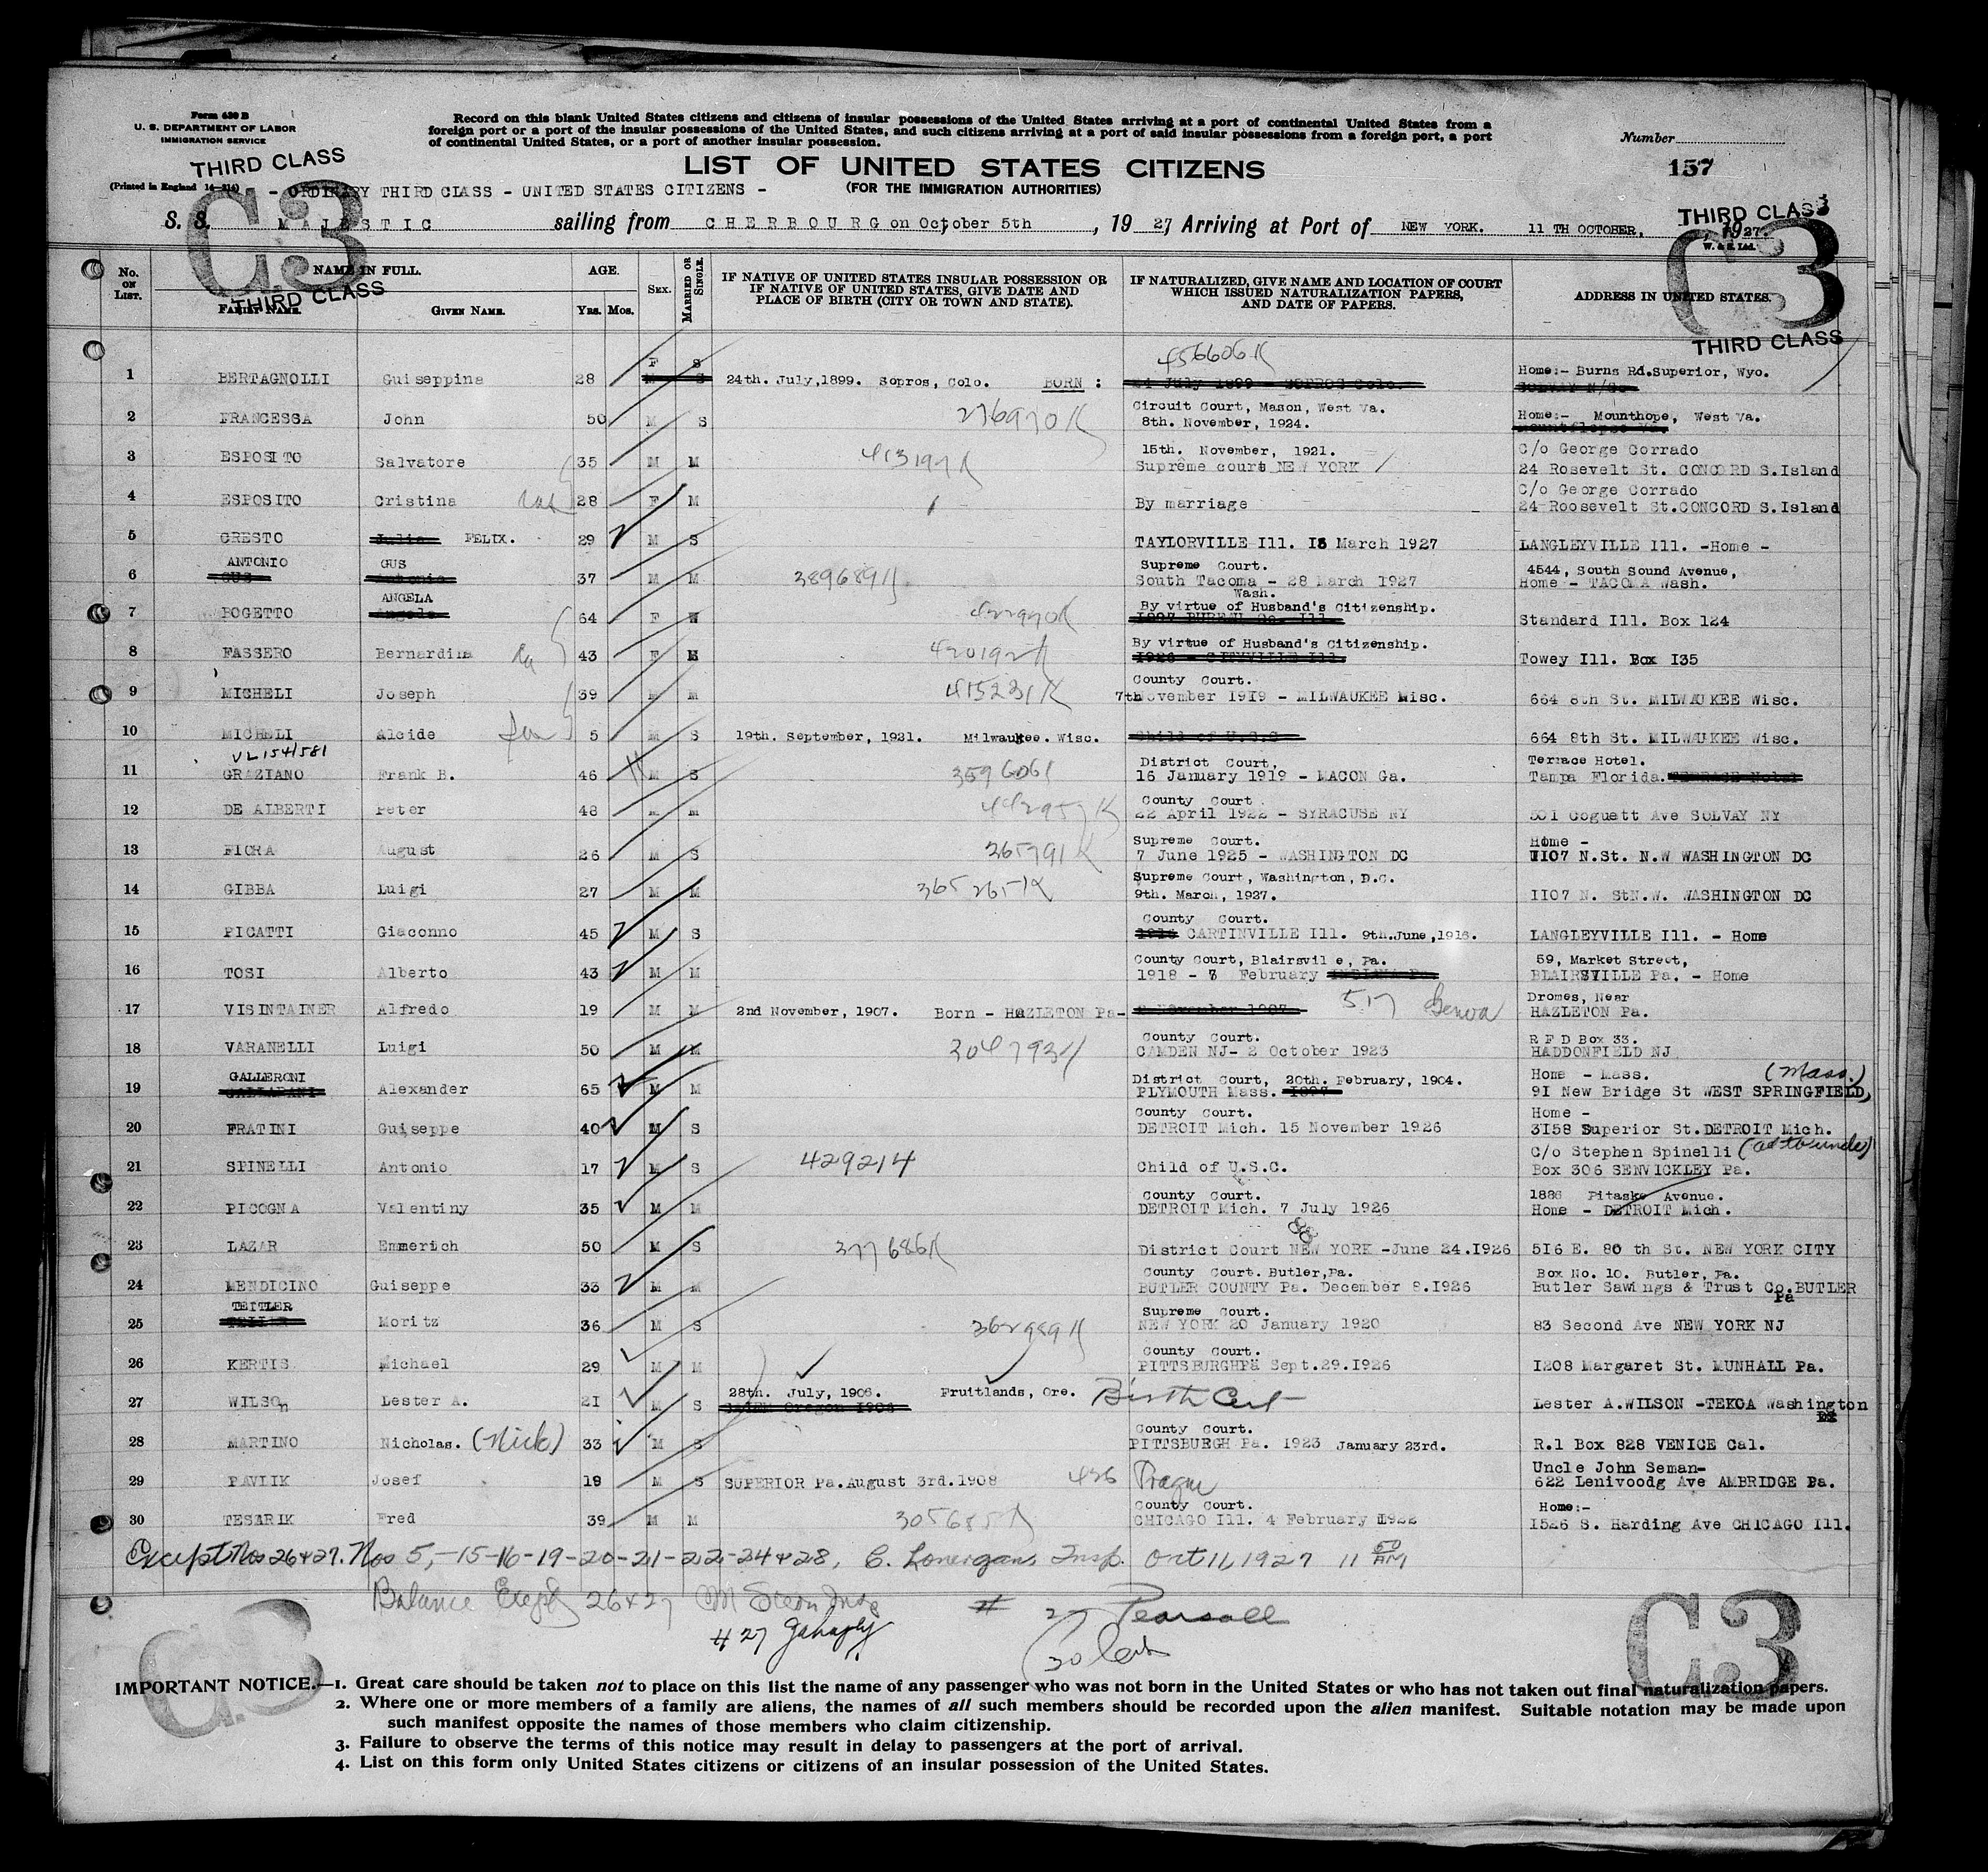 Form 630 B
U. S. DEPARTMENT OF LABOR
IMMIGRATION SERVICE
THIRD CLASS
Record on this blank United States citizens and citizens of insular possessions of the United States arriving at a port of continental United States from a
foreign port or a port of the insular possessions of the United States, and such citizens arriving at a port of said insular possessions from a foreign port, a port
of continental United States, or a port of another insular possession.
Number
157
LIST OF UNITED STATES CITIZENS
(FOR THE IMMIGRATION AUTHORITIES)
- ORDINARY THIRD CLASS - UNITED STATES CITIZENS -
THIRD CLASS
S. S. MAJESTIC sailing from CHERBOURG on October 5th, 1927 Arriving at Port of NEW YORK. 11 TH OCTOBER, 1927.
C3 C3
THIRD CLASS
THIRD CLASS
No. ON LIST. NAME IN FULL. FAMILY NAME. GIVEN NAME. AGE. Yrs. Mos. SEX. MARRIED OR SINGLE.
IF NATIVE OF UNITED STATES INSULAR POSSESSION OR IF NATIVE OF UNITED STATES, GIVE DATE AND PLACE OF BIRTH (CITY OR TOWN AND STATE).
IF NATURALIZED, GIVE NAME AND LOCATION OF COURT WHICH ISSUED NATURALIZATION PAPERS, AND DATE OF PAPERS.
ADDRESS IN UNITED STATES.
456606K
1 BERTAGNOLLI Guiseppina 28 F S M S 24th. July,1899. Sopros, Colo. BORN : 24 July 1899 - SOPROS Colo. Home:- Burns Rd.Superior, Wyo.
2 FRANCESSA John 50 M S 276970K Circuit Court, Mason, West Va. 8th. November, 1924. Home:- Mounthope, West Va.
3 ESPOSITO Salvatore 35 M M 413197K 15th. November, 1921. Suprême court NEW YORK C/o George Corrado 24 Rosevelt St. CONCORD S.Island
4 ESPOSITO Cristina 28 F M By marriage C/o George Corrado 24 Roosevelt St.CONCORD S.Island
5 CRESTO Julia FELIX. 29 M S TAYLORVILLE Ill. I3 March 1927 LANGLEYVILLE Ill. -Home -
6 ANTONIO GUS GUS Antonio 37 M M 389689K Supreme Court. South Tacoma - 28 March 1927 Wash. 4544, South Sound Avenue, Home - TACOMA Wash.
7 POGETTO ANGELA Angelo 64 F W 422970K By virtue of Husband's Citizenship. Standard Ill. Box 124
8 FASSERO Bernardina 43 F M 420192K By virtue of Husband's Citizenship. Towey Ill. Box I35
9 MICHELI Joseph 39 M M 415231K County Court. 7th November 1919 - MILWAUKEE Wisc. 664 8th St. MILWAUKEE Wisc.
10 MICHELI Alcide 5 M S 19th. September, 1921. Milwaukee. Wisc. Child of U.S.C 664 8th St. MILWAUKEE Wisc.
VL 154/581
11 GRAZIANO Frank B. 46 M S 359606K District Court, 16 January 1919 - MACON Ga. Terrace Hotel. Tampa Florida. TERRACE Hotel
12 DE ALBERTI Peter 48 M M 442957K County Court. 22 April 1922 - SYRACUSE NY 501 Coguett Ave SOLVAY NY
13 FIORA August 26 M S 365791K Supreme Court. 7 June 1925 - WASHINGTON DC Home - 1107 N.St. N.W WASHINGTON DC
14 GIBBA Luigi 27 M M 365265K Supreme Court, Washington, D.C. 9th. March, 1927. 1107 N. StN.W. WASHINGTON DC
15 PICATTI Giaconno 45 M S County Court. 1916 CARTINVILLE Ill. 9th.June,1916. LANGLEYVILLE Ill. - Home
16 TOSI Alberto 43 M M County Court, Blairsville, Pa. 1918 - 8 February INDIANA Pa. 59, Market Street, BLAIRSVILLE Pa. - Home
17 VISINTAINER Alfredo 19 M M 2nd November, 1907. Born - HAZLETON Pa- 2 November 1907 517 Genoa Dromes, Near HAZLETON Pa.
18 VARANELLI Luigi 50 M M 304793K County Court. CAMDEN NJ- 2 October 1923 R F D Box 33. HADDONFIELD NJ
19 GALLERONI Alexander 65 M M District Court, 20th. February, 1904. PLYMOUTH Mass. 1897 Home - Mass. (Mass.) 91 New Bridge St WEST SPRINGFIELD,
20 FRATINI Guiseppe 40 M S County Court. DETROIT Mich. 15 November 1926 Home - 3158 Superior St.DETROIT Mich.
21 SPINELLI Antonio 17 M S 429214 Child of U.S.C. C/o Stephen Spinelli Box 306 SENVICKLEY Pa.
22 PICOGNA Valentiny 35 M M County Court. DETROIT Mich. 7 July 1926 1886 Pitasko Avenue. Home - DETROIT Mich.
23 LAZAR Emmerich 50 M S 377686K District Court NEW YORK -June 24.1926 516 E. 80 th St. NEW YORK CITY
24 MENDICINO Guiseppe 33 M M County Court. Butler,Pa. BUTLER COUNTY Pa. December 8.1926 Box No. 10. Butler, Pa. Butler Sawings & Trust Co.BUTLER Pa
25 TEITLER Moritz 36 M S 362989K Supreme Court. NEW YORK 20 January 1920 83 Second Ave NEW YORK NJ
26 KERTIS Michael 29 M M County Court. PITTSBURGHPa Sept.29.1926 1208 Margaret St. MUNHALL Pa.
27 WILSOn Lester A. 21 M S 28th. July, 1906. Fruitlands, Ore. SALEM Oregon 1906 Birth Cert Lester A.WILSON -TEKOA Washington
28 MARTINO Nicholas. (Nick) 33 M S County Court. PITTSBURGH Pa. 1923 January 23rd. R.1 Box 828 VENICE Cal.
29 PAVLIK Josef 19 M S SUPERIOR Pa.August 3rd.1908 426 Prague Uncle John Seman- 622 Lenivoodg Ave AMBRIDGE Pa.
30 TESARIK Fred 39 M M 305685K County Court. CHICAGO Ill. 4 February 1922 Home:- 1526 S. Harding Ave CHICAGO Ill.
Except Nos 26 & 27. Nos 5,-15-16-19-20-21-22-24 & 28, C. Lonergans Insp. Oct 11, 1927 11 50 AM
Balance Except 26 & 27
# 27 27 Pearsall
C3 C3
IMPORTANT NOTICE.—1. Great care should be taken not to place on this list the name of any passenger who was not born in the United States or who has not taken out final naturalization papers.
2. Where one or more members of a family are aliens, the names of all such members should be recorded upon the alien manifest. Suitable notation may be made upon
such manifest opposite the names of those members who claim citizenship.
3. Failure to observe the terms of this notice may result in delay to passengers at the port of arrival.
4. List on this form only United States citizens or citizens of an insular possession of the United States.